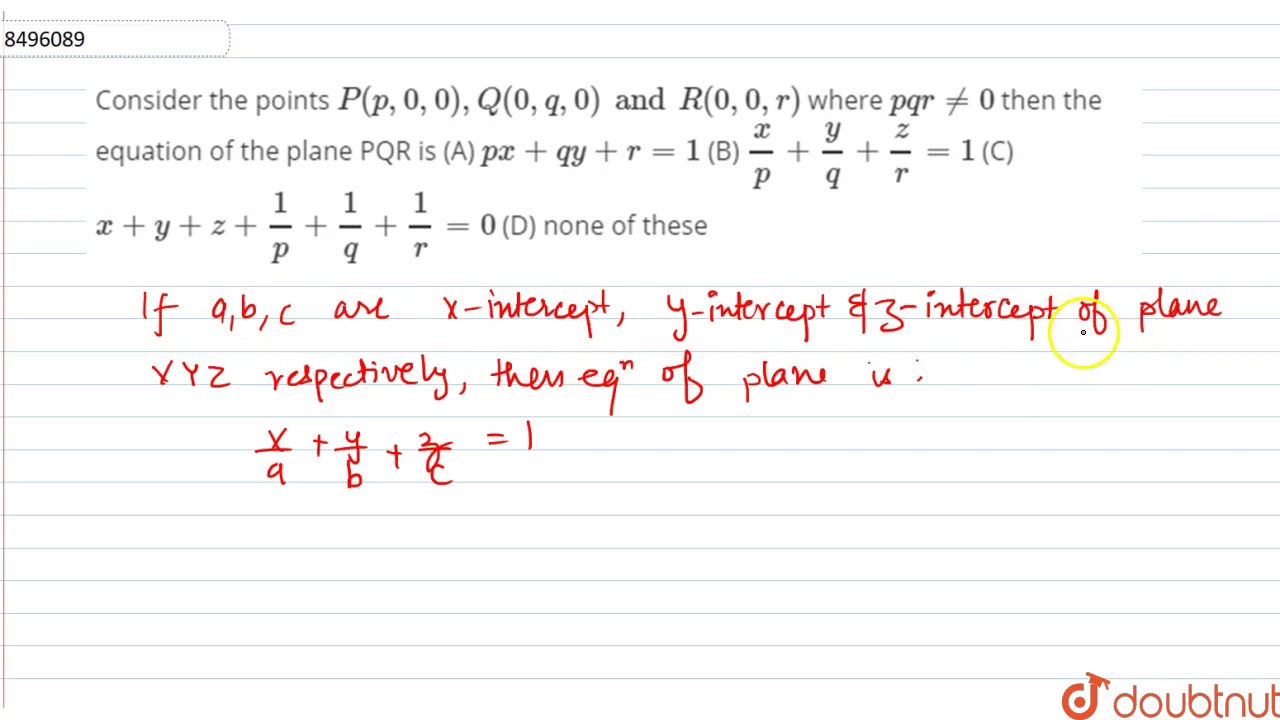 8496089
Consider the points P(p, 0, 0), Q(0, q, 0) and R(0, 0, r) where pqr ≠ 0 then the
equation of the plane PQR is (A) px + qy + r = 1 (B) x/p + y/q + z/r = 1 (C)
x + y + z + 1/p + 1/q + 1/r = 0 (D) none of these
If a, b, c are x-intercept, y-intercept & z-intercept of plane
XYZ respectively, then eqⁿ of plane is :
x/a + y/b + z/c = 1
doubtnut